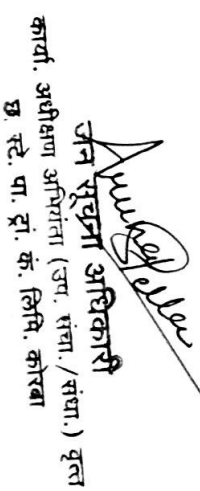 जन सूचना अधिकारी
कार्या. अधीक्षण अभियंता (उप. संचा./संधा.) वृत्त
छ. स्टे. पा. ट्रां. कं. लिमि. कोरबा